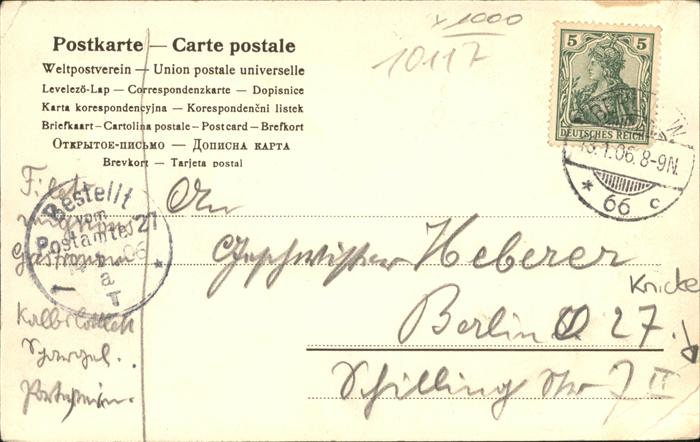 x 1000
10117
Postkarte — Carte postale
Weltpostverein — Union postale universelle
Levelező-Lap — Correspondenzkarte — Dopisnice
Karta korespondencyjna — Korespondenční listek
Briefkaart — Cartolina postale — Postcard — Brefkort
Открытое-письмо — Дописна карта
Brevkort — Tarjeta postal
5 5
DEUTSCHES REICH
BERLIN
13.1.06. 8-9N.
* 66 c
Bestellt
vom
Postamte 27
An
Geschwister Heberer
Knicke
Berlin O 27.
Schilling Str 7 II
Kalbskotlett
Spargel.